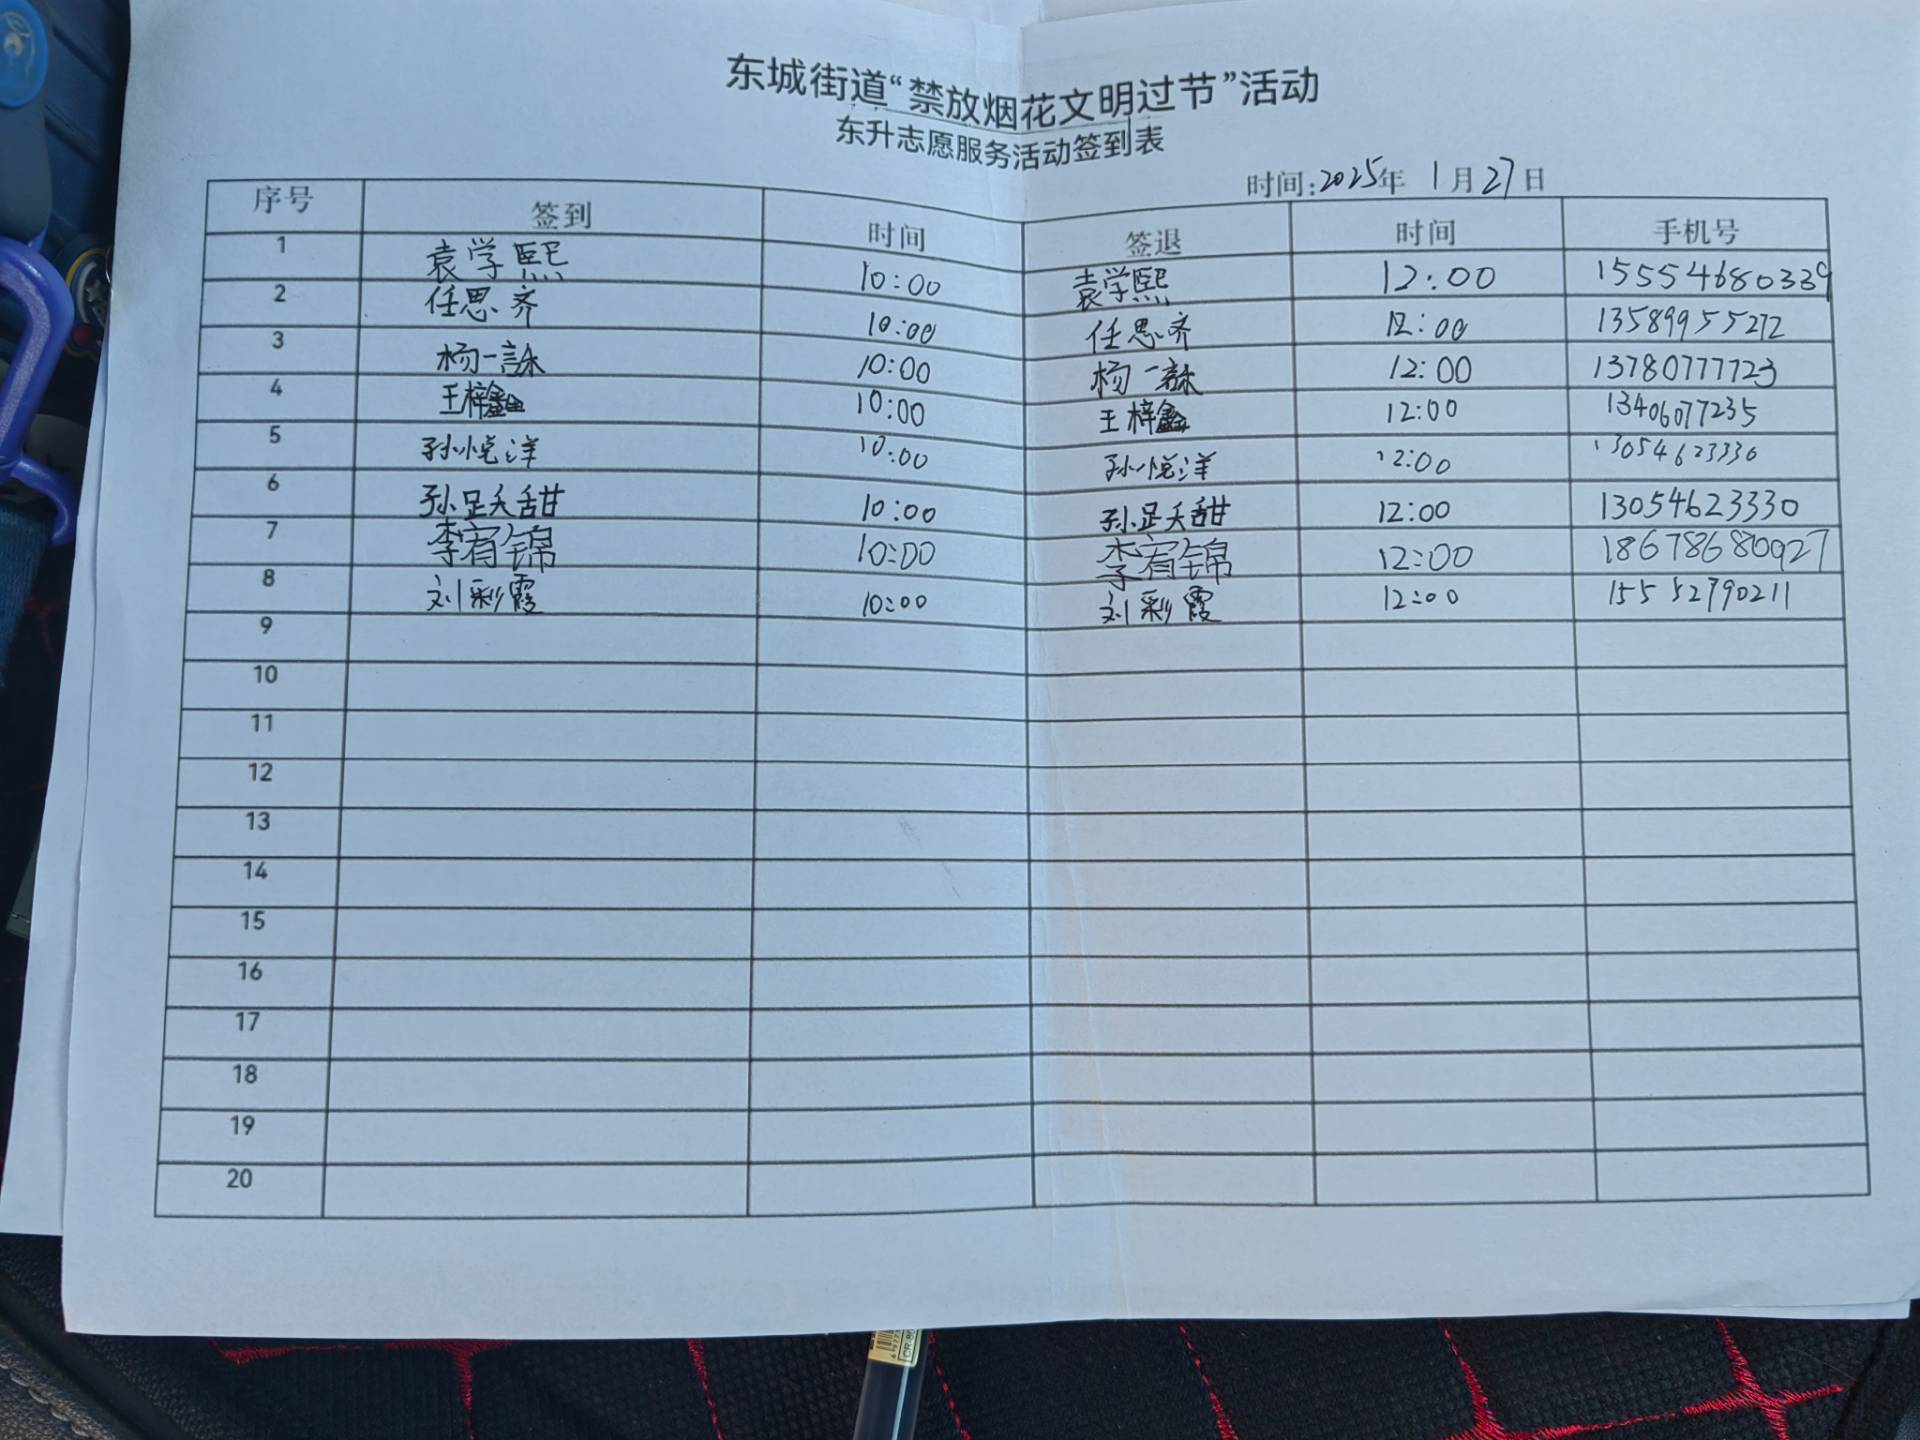 东城街道“禁放烟花文明过节”活动
东升志愿服务活动签到表
时间:2025年 1月27日
序号 签到 时间 签退 时间 手机号
1 袁学熙 10:00 袁学熙 12:00 15554680339
2 任思齐 10:00 任思齐 12:00 13589955272
3 杨一 10:00 杨一 12:00 13780777723
4 王梓鑫 10:00 王梓鑫 12:00 13406077235
5 孙悦洋 10:00 孙悦洋 12:00 13054623330
6 孙甜 10:00 孙甜 12:00 13054623330
7 李宥锦 10:00 李宥锦 12:00 18678680927
8 刘彩霞 10:00 刘彩霞 12:00 15552790211
9
10
11
12
13
14
15
16
17
18
19
20